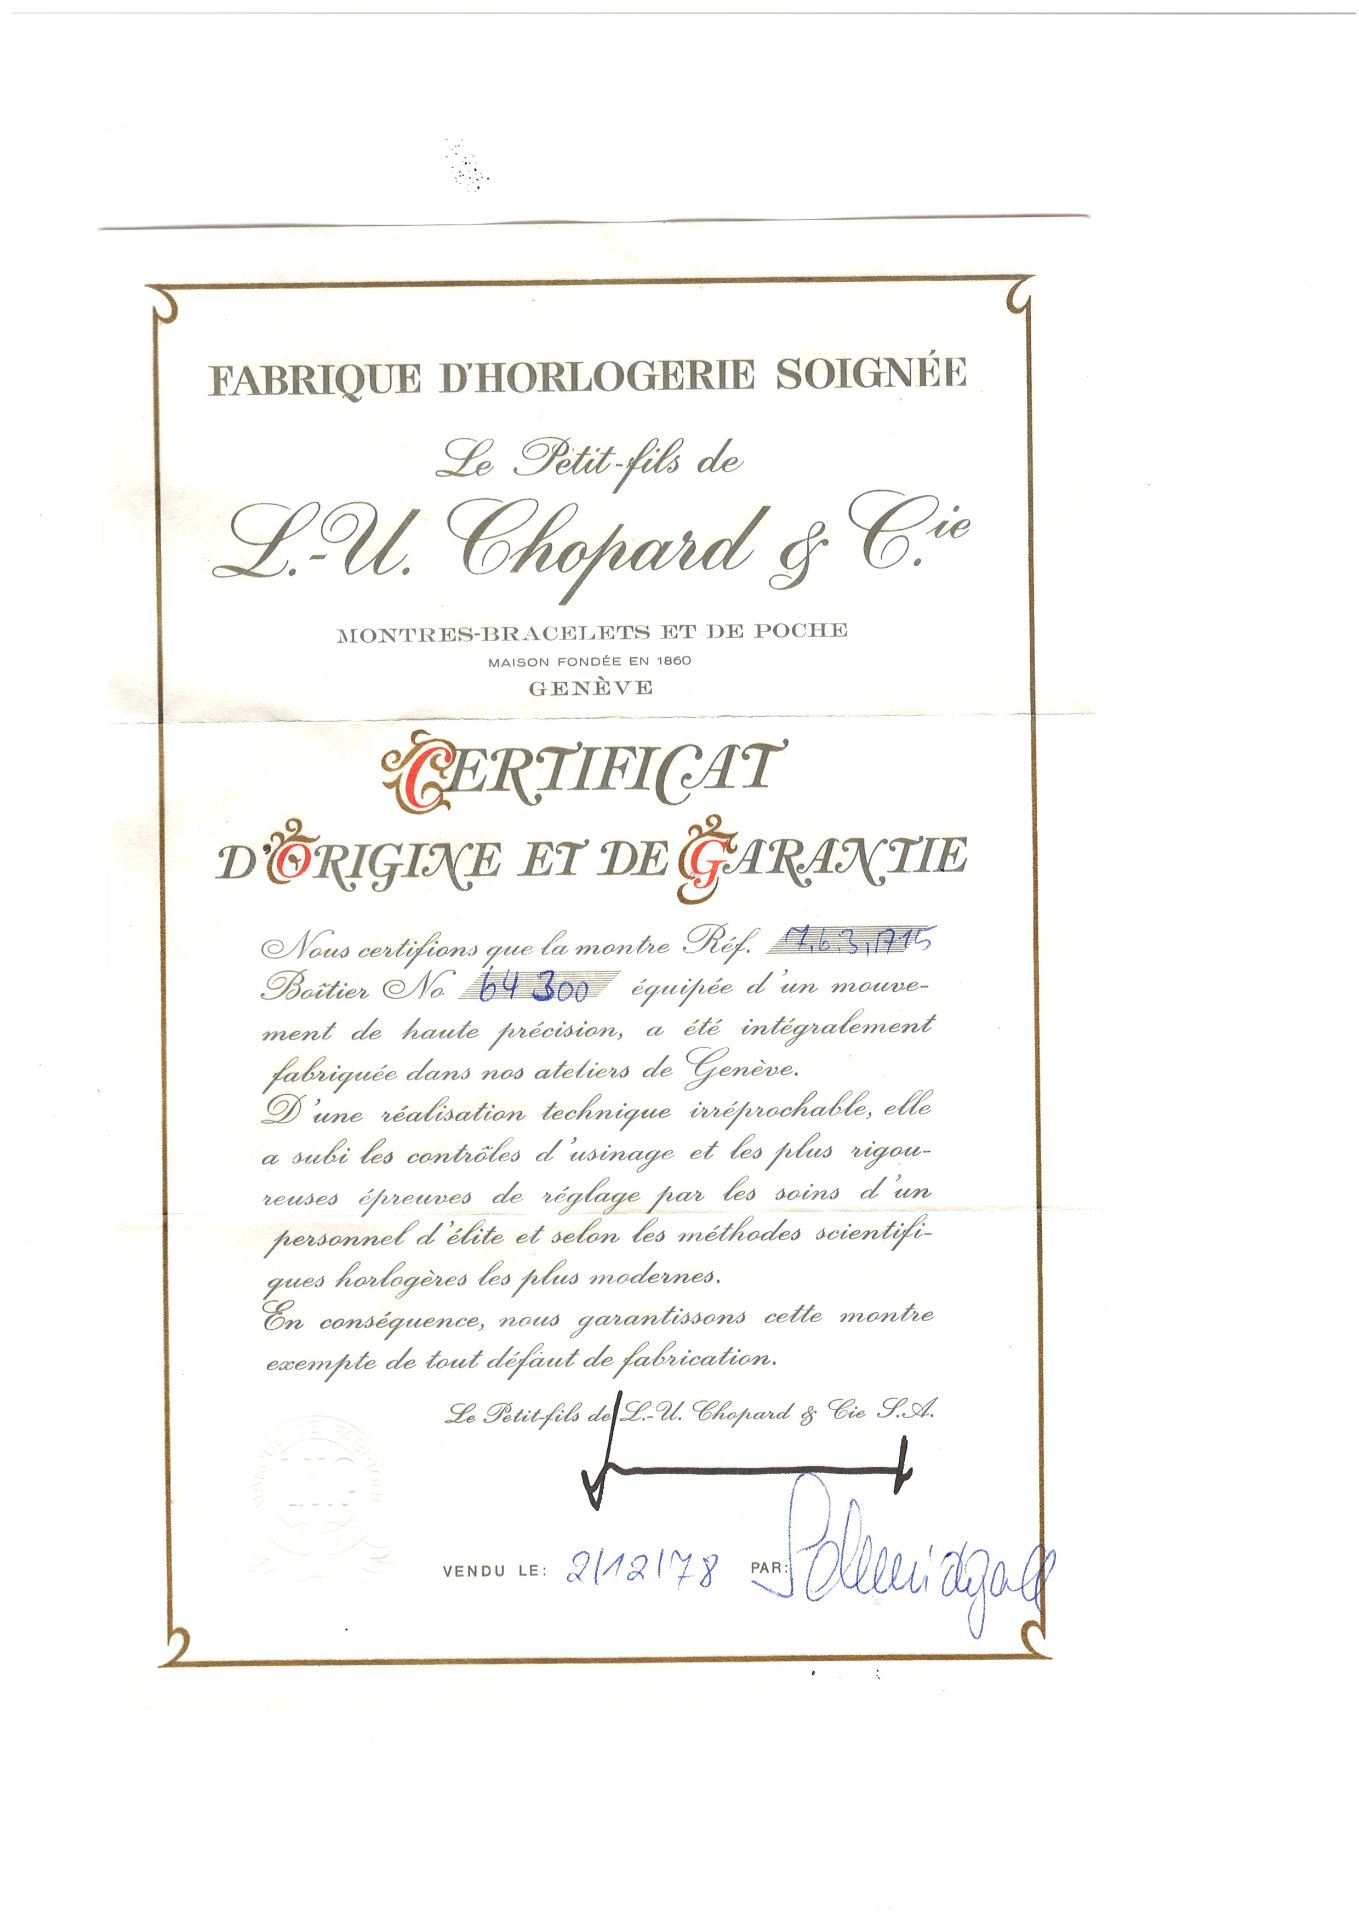 FABRIQUE D'HORLOGERIE SOIGNÉE
Le Petit-fils de
L.-U. Chopard & C.ie
MONTRES-BRACELETS ET DE POCHE
MAISON FONDÉE EN 1860
GENÈVE
CERTIFICAT
D'ORIGINE ET DE GARANTIE
Nous certifions que la montre Réf.
Boîtier No 64 300 équipée d'un mouve-
ment de haute précision, a été intégralement
fabriquée dans nos ateliers de Genève.
D'une réalisation technique irréprochable, elle
a subi les contrôles d'usinage et les plus rigou-
reuses épreuves de réglage par les soins d'un
personnel d'élite et selon les méthodes scientifi-
ques horlogères les plus modernes.
En conséquence, nous garantissons cette montre
exempte de tout défaut de fabrication.
Le Petit-fils de L.-U. Chopard & Cie S.A.
VENDU LE: 2/12/78 PAR: